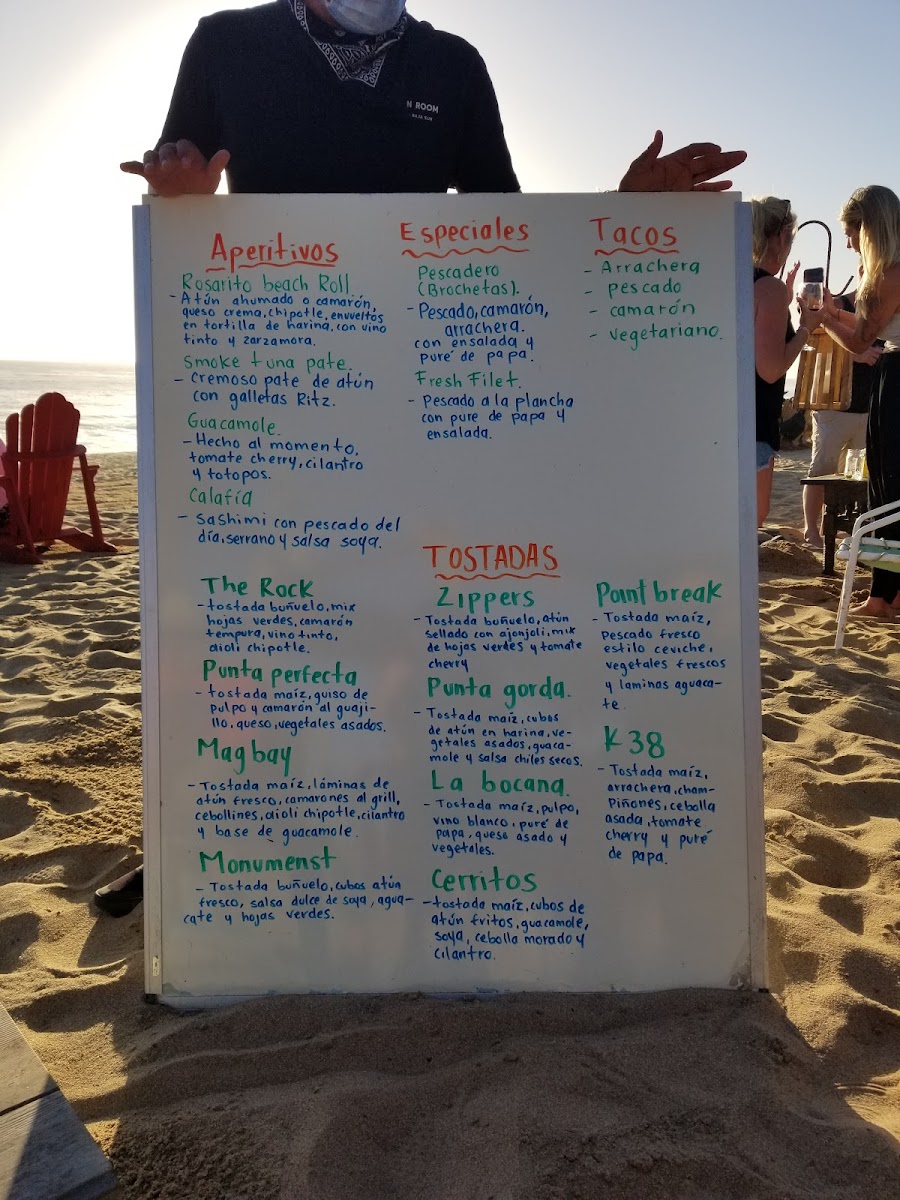 N ROOM
Aperitivos
Rosarito beach Roll.
- Atún ahumado o camarón,
queso crema, chipotle, envueltos
en tortilla de harina, con vino
tinto y zarzamora.
smoke tuna pate.
- Cremoso pate de atún
con galletas Ritz.
Guacamole.
- Hecho al momento,
tomate cherry, cilantro
y totopos.
Calafia
- Sashimi con pescado del
día, serrano y salsa soya.
Especiales
Pescadero
(Brochetas).
- Pescado, camarón,
arrachera.
con ensalada y
puré de papa.
Fresh Filet.
- Pescado a la plancha
con pure de papa y
ensalada.
Tacos
- Arrachera
- pescado
- camarón
- vegetariano.
TOSTADAS
The Rock
- tostada buñuelo, mix
hojas verdes, camarón
tempura, vino tinto,
aioli chipotle.
Punta perfecta
- tostada maíz, guiso de
pulpo y camarón al guaji-
llo, queso, vegetales asados.
Mag bay
- Tostada maíz, láminas de
atún fresco, camarones al grill,
cebollines, aioli chipotle, cilantro
y base de guacamole.
Monumenst
- Tostada buñuelo, cubos atún
fresco, salsa dulce de soya, agua-
cate y hojas verdes.
Zippers
- Tostada buñuelo, atún
sellado con ajonjoli, mix
de hojas verdes y tomate
cherry
Punta gorda.
- Tostada maíz, cubos
de atún en harina, ve-
getales asados, guaca-
mole y salsa chiles secos.
La bocana.
- Tostada maíz, pulpo,
vino blanco, puré de
papa, queso asado y
vegetales.
Cerritos
- tostada maíz, cubos de
atún fritos, guacamole,
soya, cebolla morado y
cilantro.
Point break
- Tostada maíz,
pescado fresco
estilo ceviche,
vegetales frescos
y laminas aguaca-
te.
K38
- Tostada maíz,
arrachera, cham-
piñones, cebolla
asada, tomate
cherry y puré
de papa.